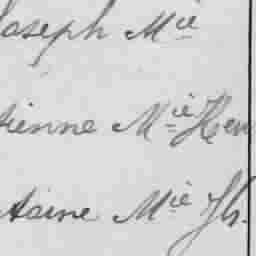 Joseph Mie
tienne Mie Hen
toine Mie Jh.